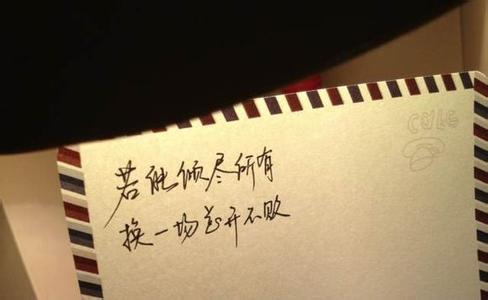 若能倾尽所有
换一场花开不败